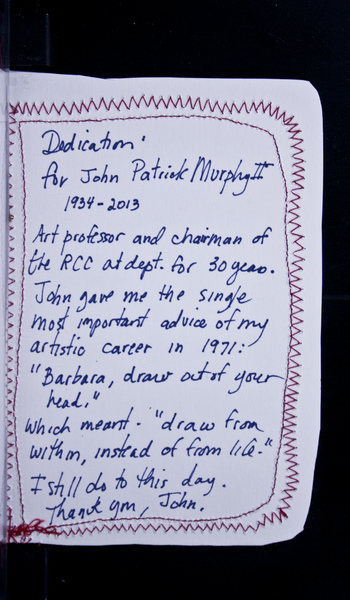 Dedication:
for John Patrick Murphy II
1934-2013
Art professor and chairman of
the RCC art dept. for 30 years.
John gave me the single
most important advice of my
artistic career in 1971:
"Barbara, draw out of your
head."
Which meant - "draw from
within, instead of from life."
I still do to this day.
Thank you, John.